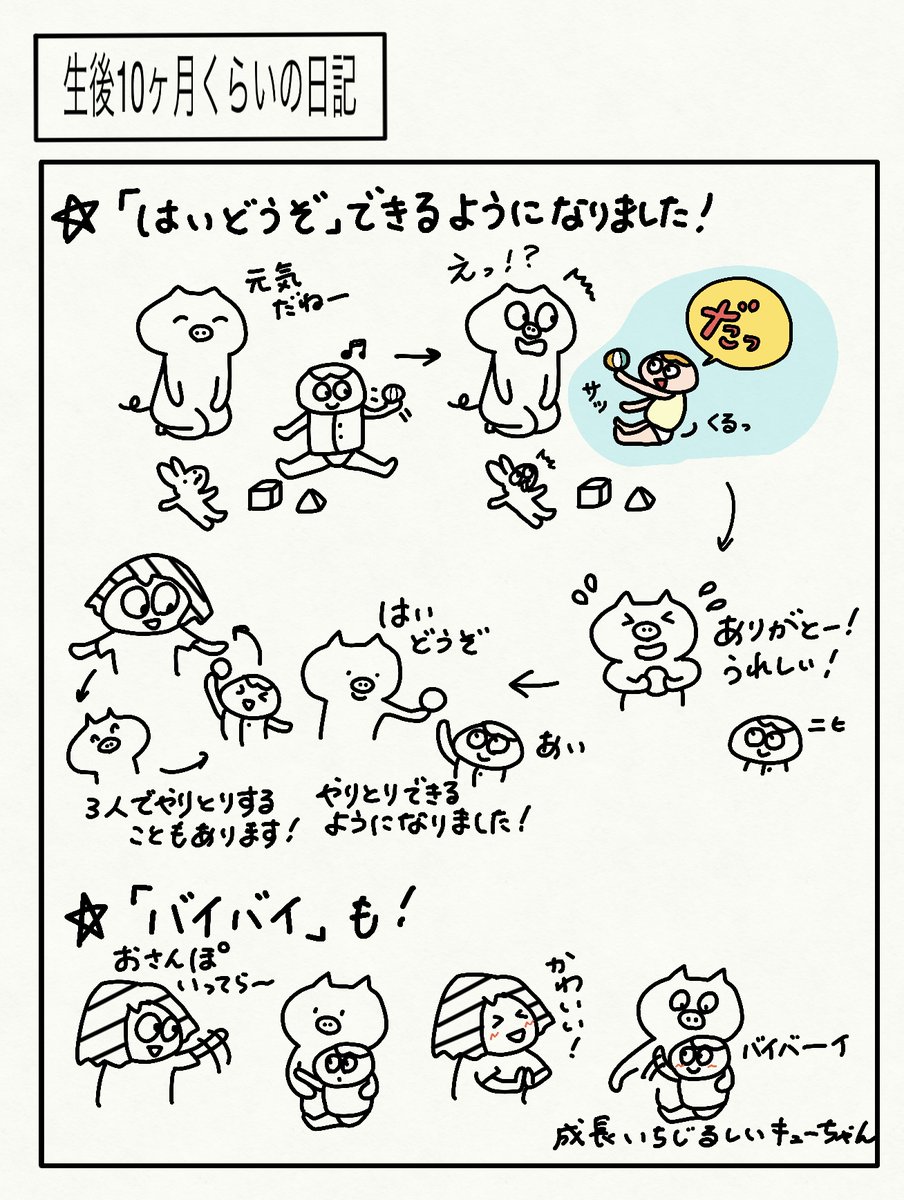 生後10ヶ月くらいの日記
☆「はいどうぞ」できるようになりました！
元気
だねー
えっ！？
だっ
サッ
くるっ
ありがとー！
うれしい！
ニヒ
はい
どうぞ
あい
やりとりできる
ようになりました！
3人でやりとりする
こともあります！
☆「バイバイ」も！
おさんぽ
いってら〜
かわいい！
バイバーイ
成長いちじるしいキューちゃん